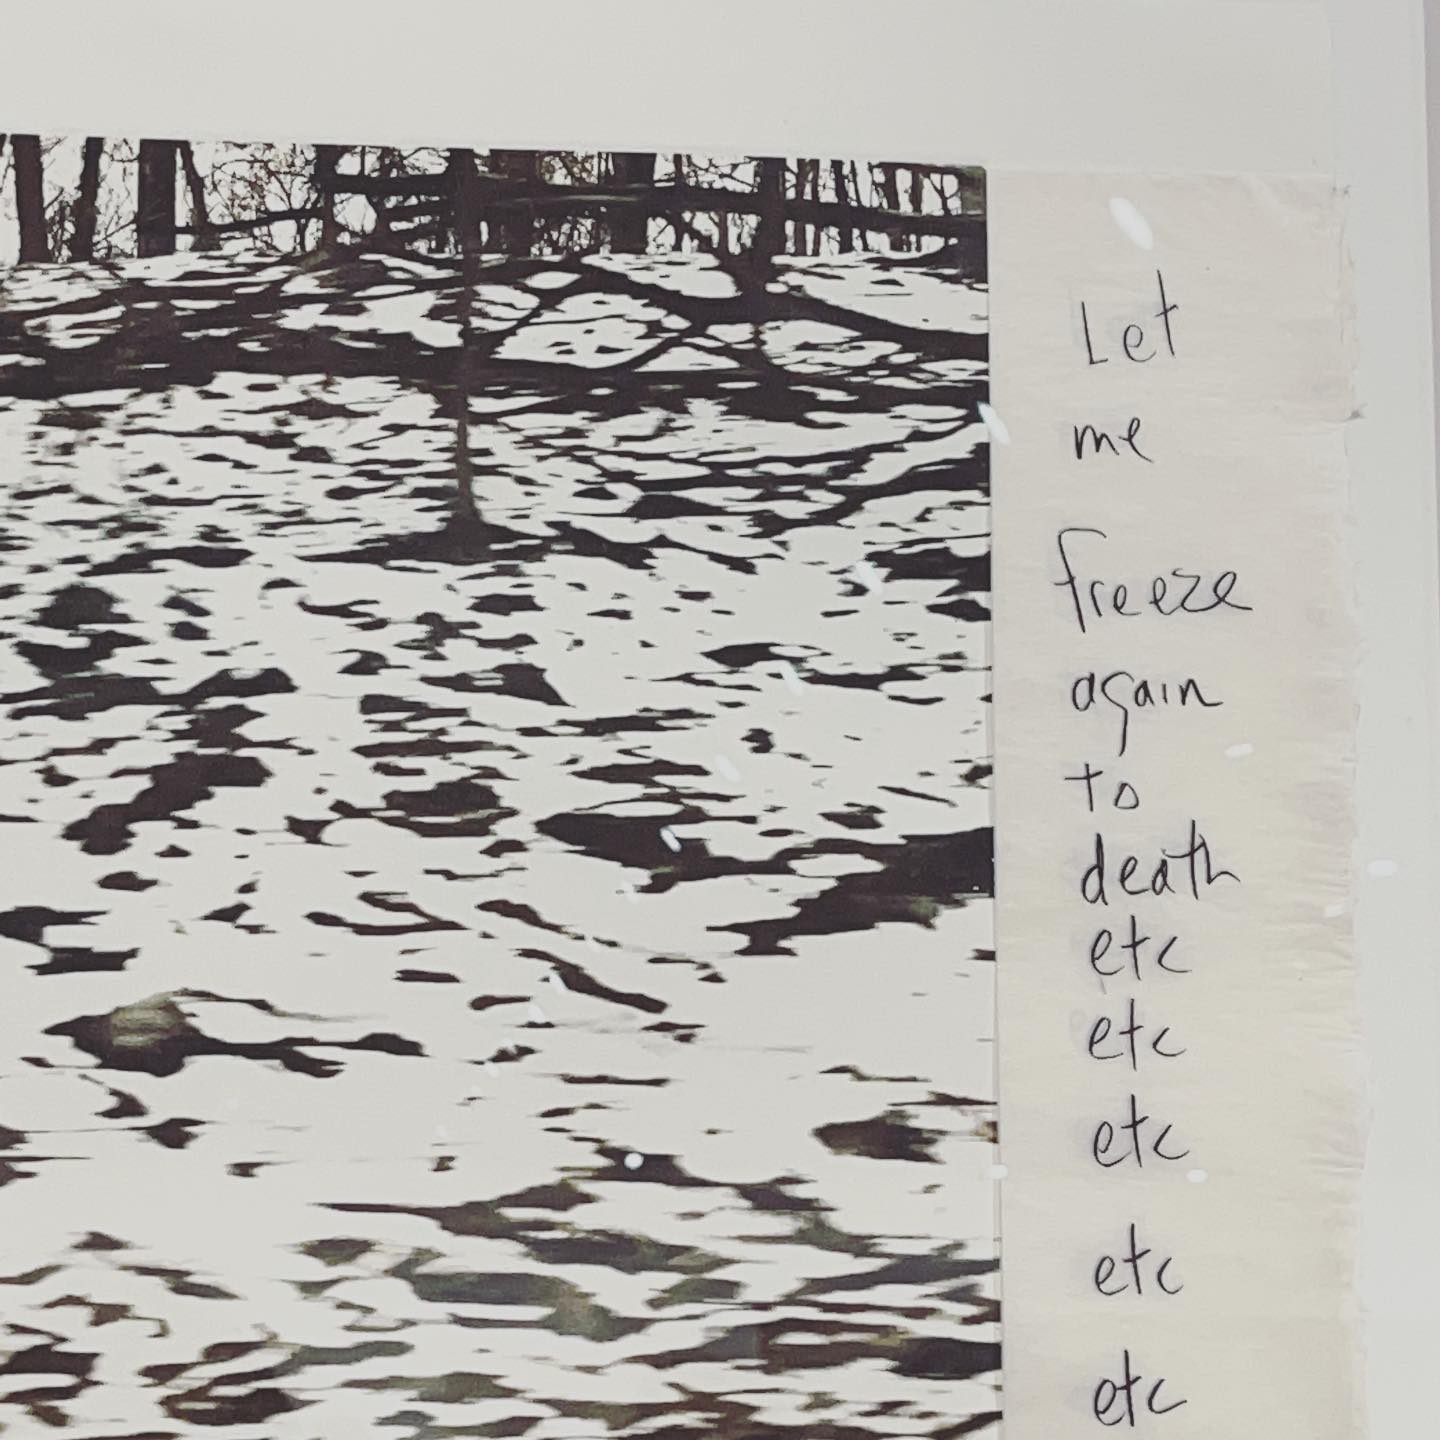 Let
me
freeze
again
to
death
etc
etc
etc
etc
etc